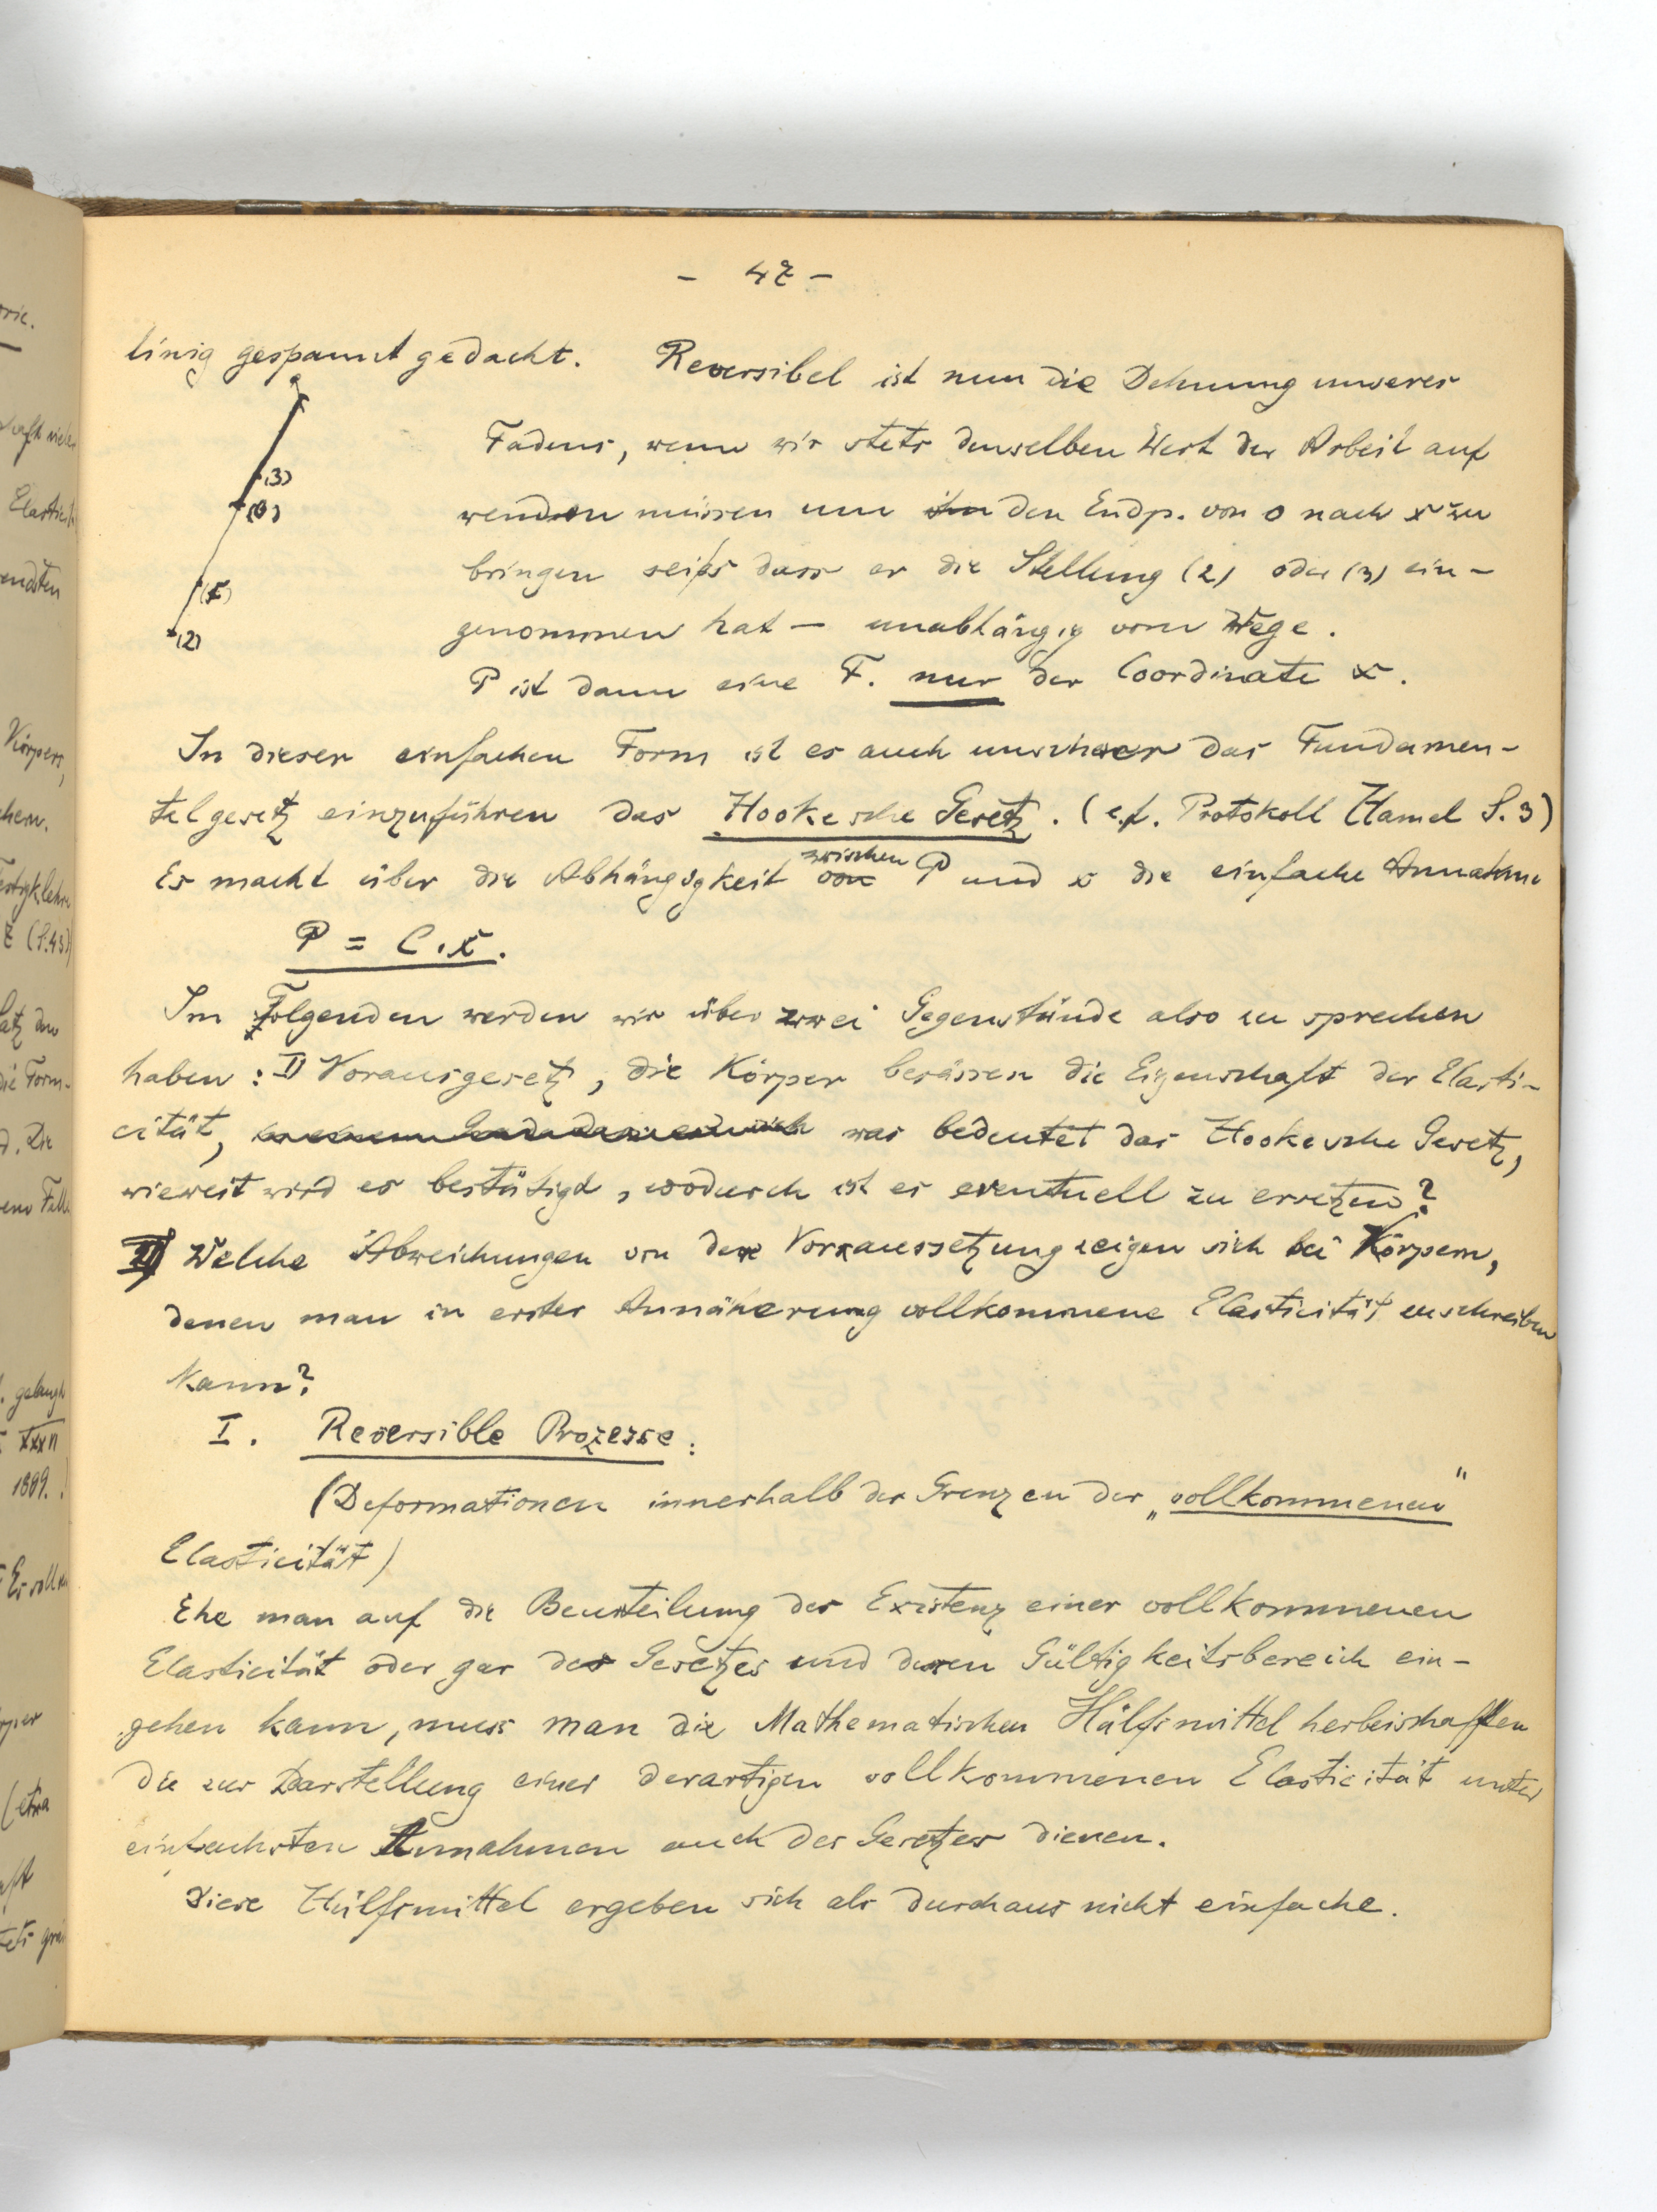 - 47 -
linig gespannt gedacht. Reversibel ist nun die Dehnung unseres
Fadens, wenn wir stets denselben Wert der Arbeit auf
wenden müssen um den Endp. von 0 nach x zu
bringen sei's dass er die Stellung (2) oder (3) ein-
genommen hat — unabhängig vom Wege.
P ist dann eine F. nur der Coordinate x.
(3)
(0)
(x)
(2)
In dieser einfachen Form ist es auch unschwer das Fundamen-
talgesetz einzuführen das Hookesche Gesetz. (c.f. Protokoll Hamel S. 3)
Es macht über die Abhängigkeit zwischen P und x die einfache Annahme
P = C.x.
Im Folgenden werden wir über zwei Gegenstände also zu sprechen
haben: I) Vorausgesetz, die Körper besässen die Eigenschaft der Elasti-
cität, was bedeutet das Hookesche Gesetz,
wieweit wird es bestätigt, wodurch ist es eventuell zu ersetzen?
II) Welche Abweichungen von der Voraussetzung zeigen sich bei Körpern,
denen man in erster Annäherung vollkommene Elasticität zuschreiben
kann?
I. Reversible Prozesse:
(Deformationen innerhalb der Grenzen der „vollkommenen"
Elasticität)
Ehe man auf die Beurteilung der Existenz einer vollkommenen
Elasticität oder gar des Gesetzes und deren Gültigkeitsbereich ein-
gehen kann, muss man die Mathematischen Hülfsmittel herbeischaffen
die zur Darstellung einer derartigen vollkommenen Elasticität unter
einfachsten Annahmen auch des Gesetzes dienen.
Diese Hülfsmittel ergeben sich als durchaus nicht einfache.